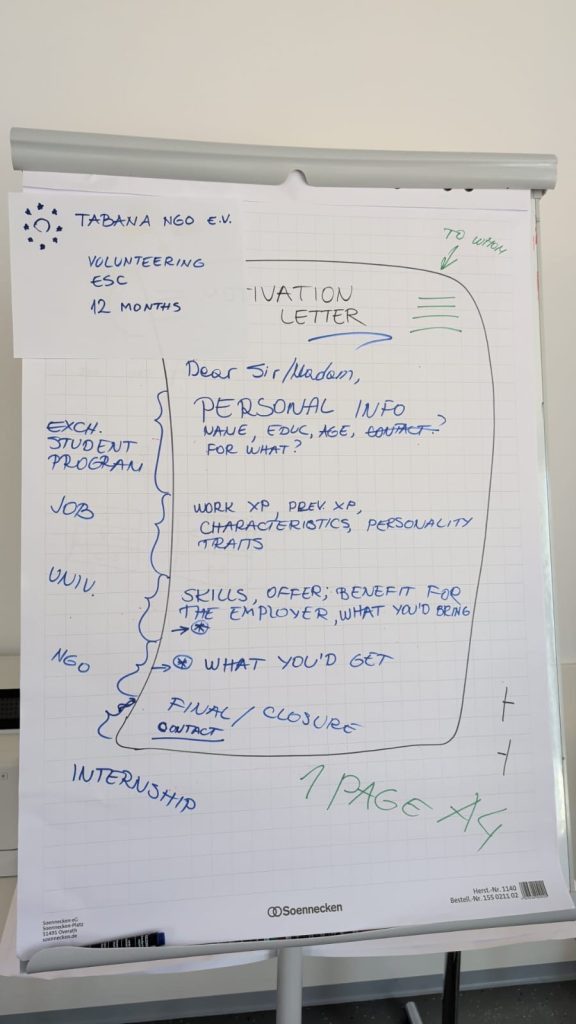 TABANA NGO E.V.
VOLUNTEERING
ESC
12 MONTHS
TO WHOM
TIVATION
LETTER
Dear Sir/Madam,
PERSONAL INFO
NAME, EDUC, AGE, CONTACT?
FOR WHAT?
EXCH.
STUDENT
PROGRAM
JOB
WORK XP, PREV. XP,
CHARACTERISTICS, PERSONALITY
TRAITS
UNIV.
SKILLS, OFFER; BENEFIT FOR
THE EMPLOYER, WHAT YOU'D BRING
→ *
NGO
→ * WHAT YOU'D GET
FINAL / CLOSURE
CONTACT
INTERNSHIP
1 PAGE A4
Soennecken
Herst.-Nr. 1140
Bestell.-Nr. 155 0211 02
Soennecken eG
Soennecken-Platz
51491 Overath
soennecken.de